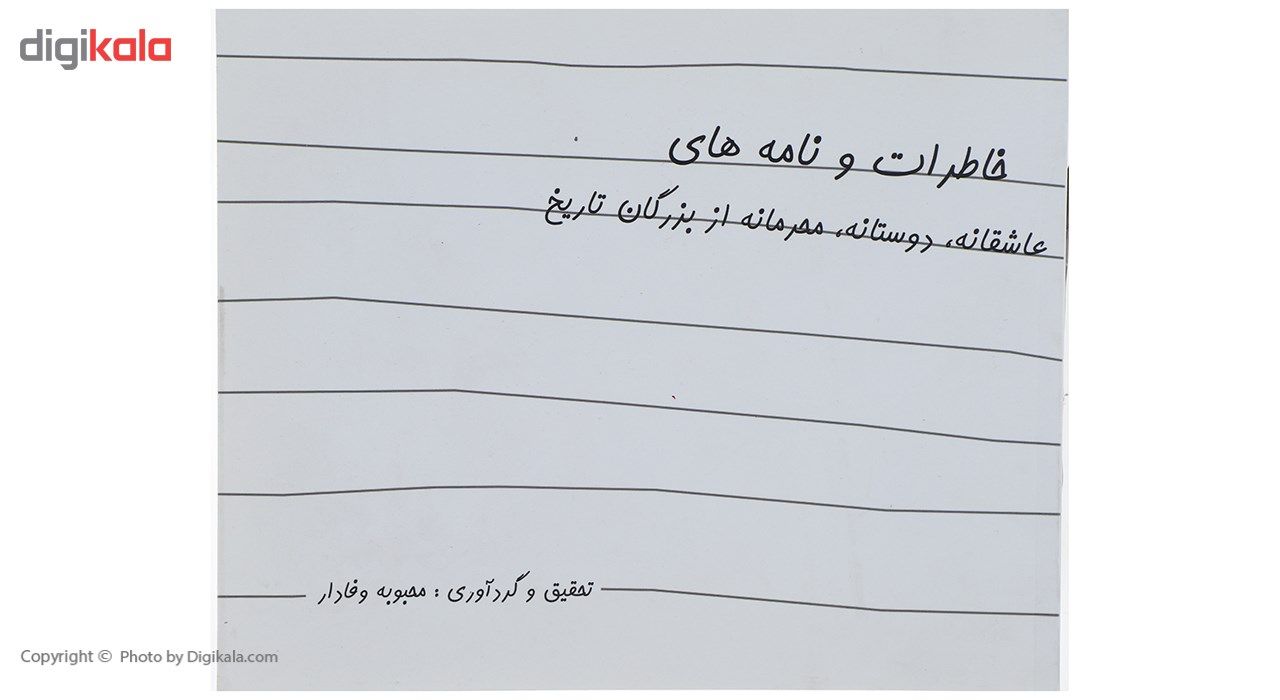 digikala
خاطرات و نامه های
عاشقانه، دوستانه، محرمانه از بزرگان تاریخ
تحقیق و گردآوری : محبوبه وفادار
Copyright © Photo by Digikala.com